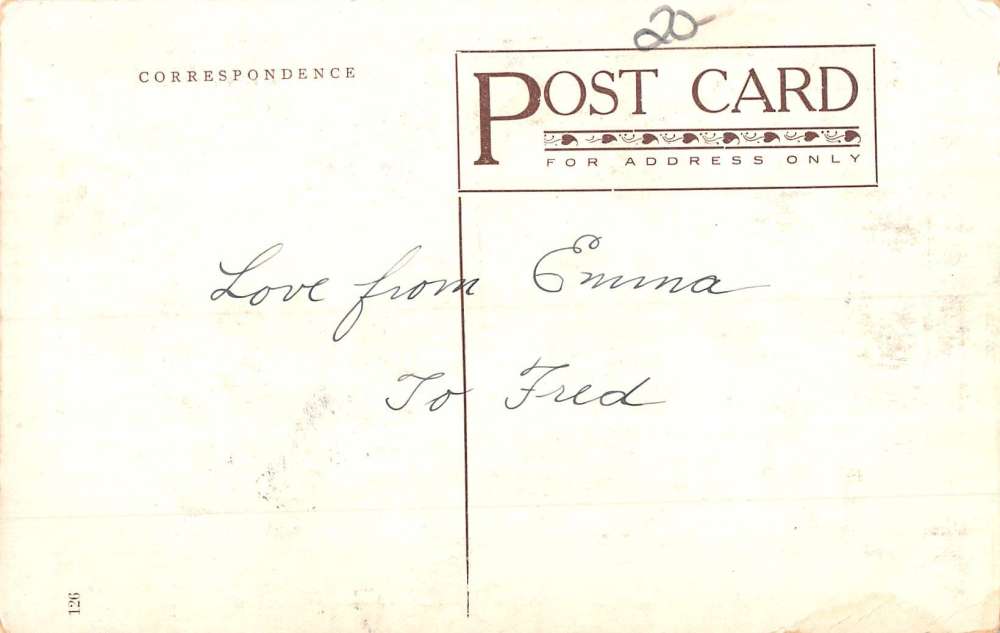 20-
CORRESPONDENCE
POST CARD
FOR ADDRESS ONLY
Love from Emma
To Fred
126